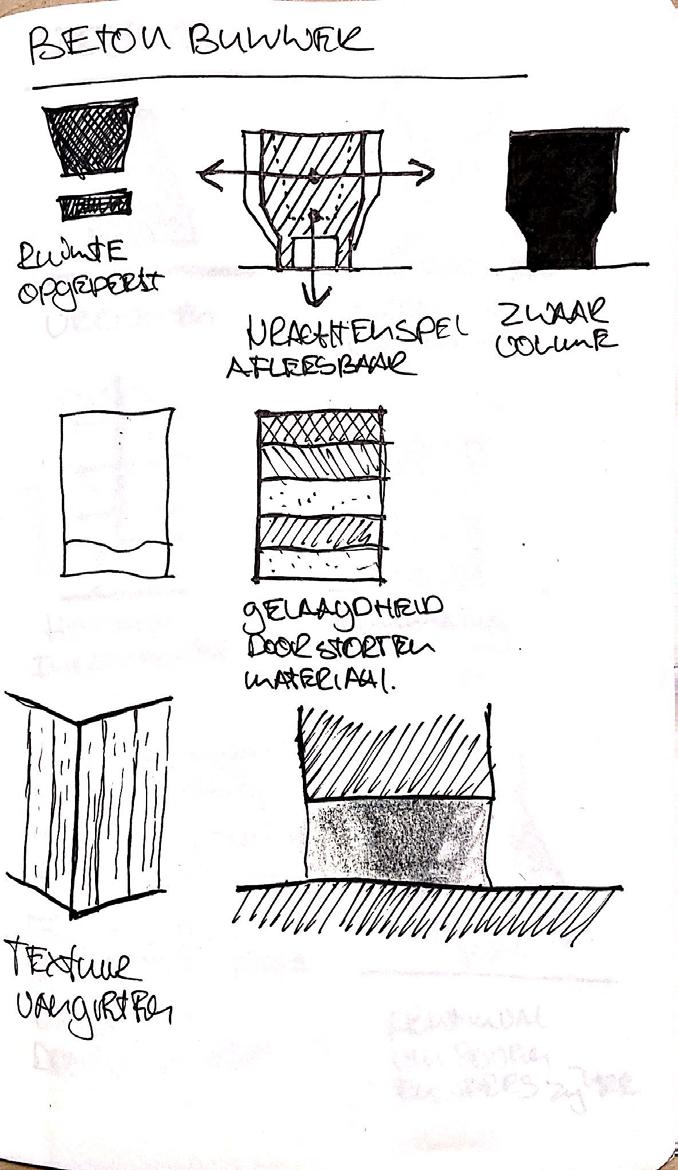 BETON BUNKER
RUIMTE
OPGEPERST
KRACHTENSPEL
AFLEESBAAR
ZWAAR
VOLUME
GELAAGDHEID
DOOR STORTEN
MATERIAAL.
TEXTUUR
VAN GIETEN